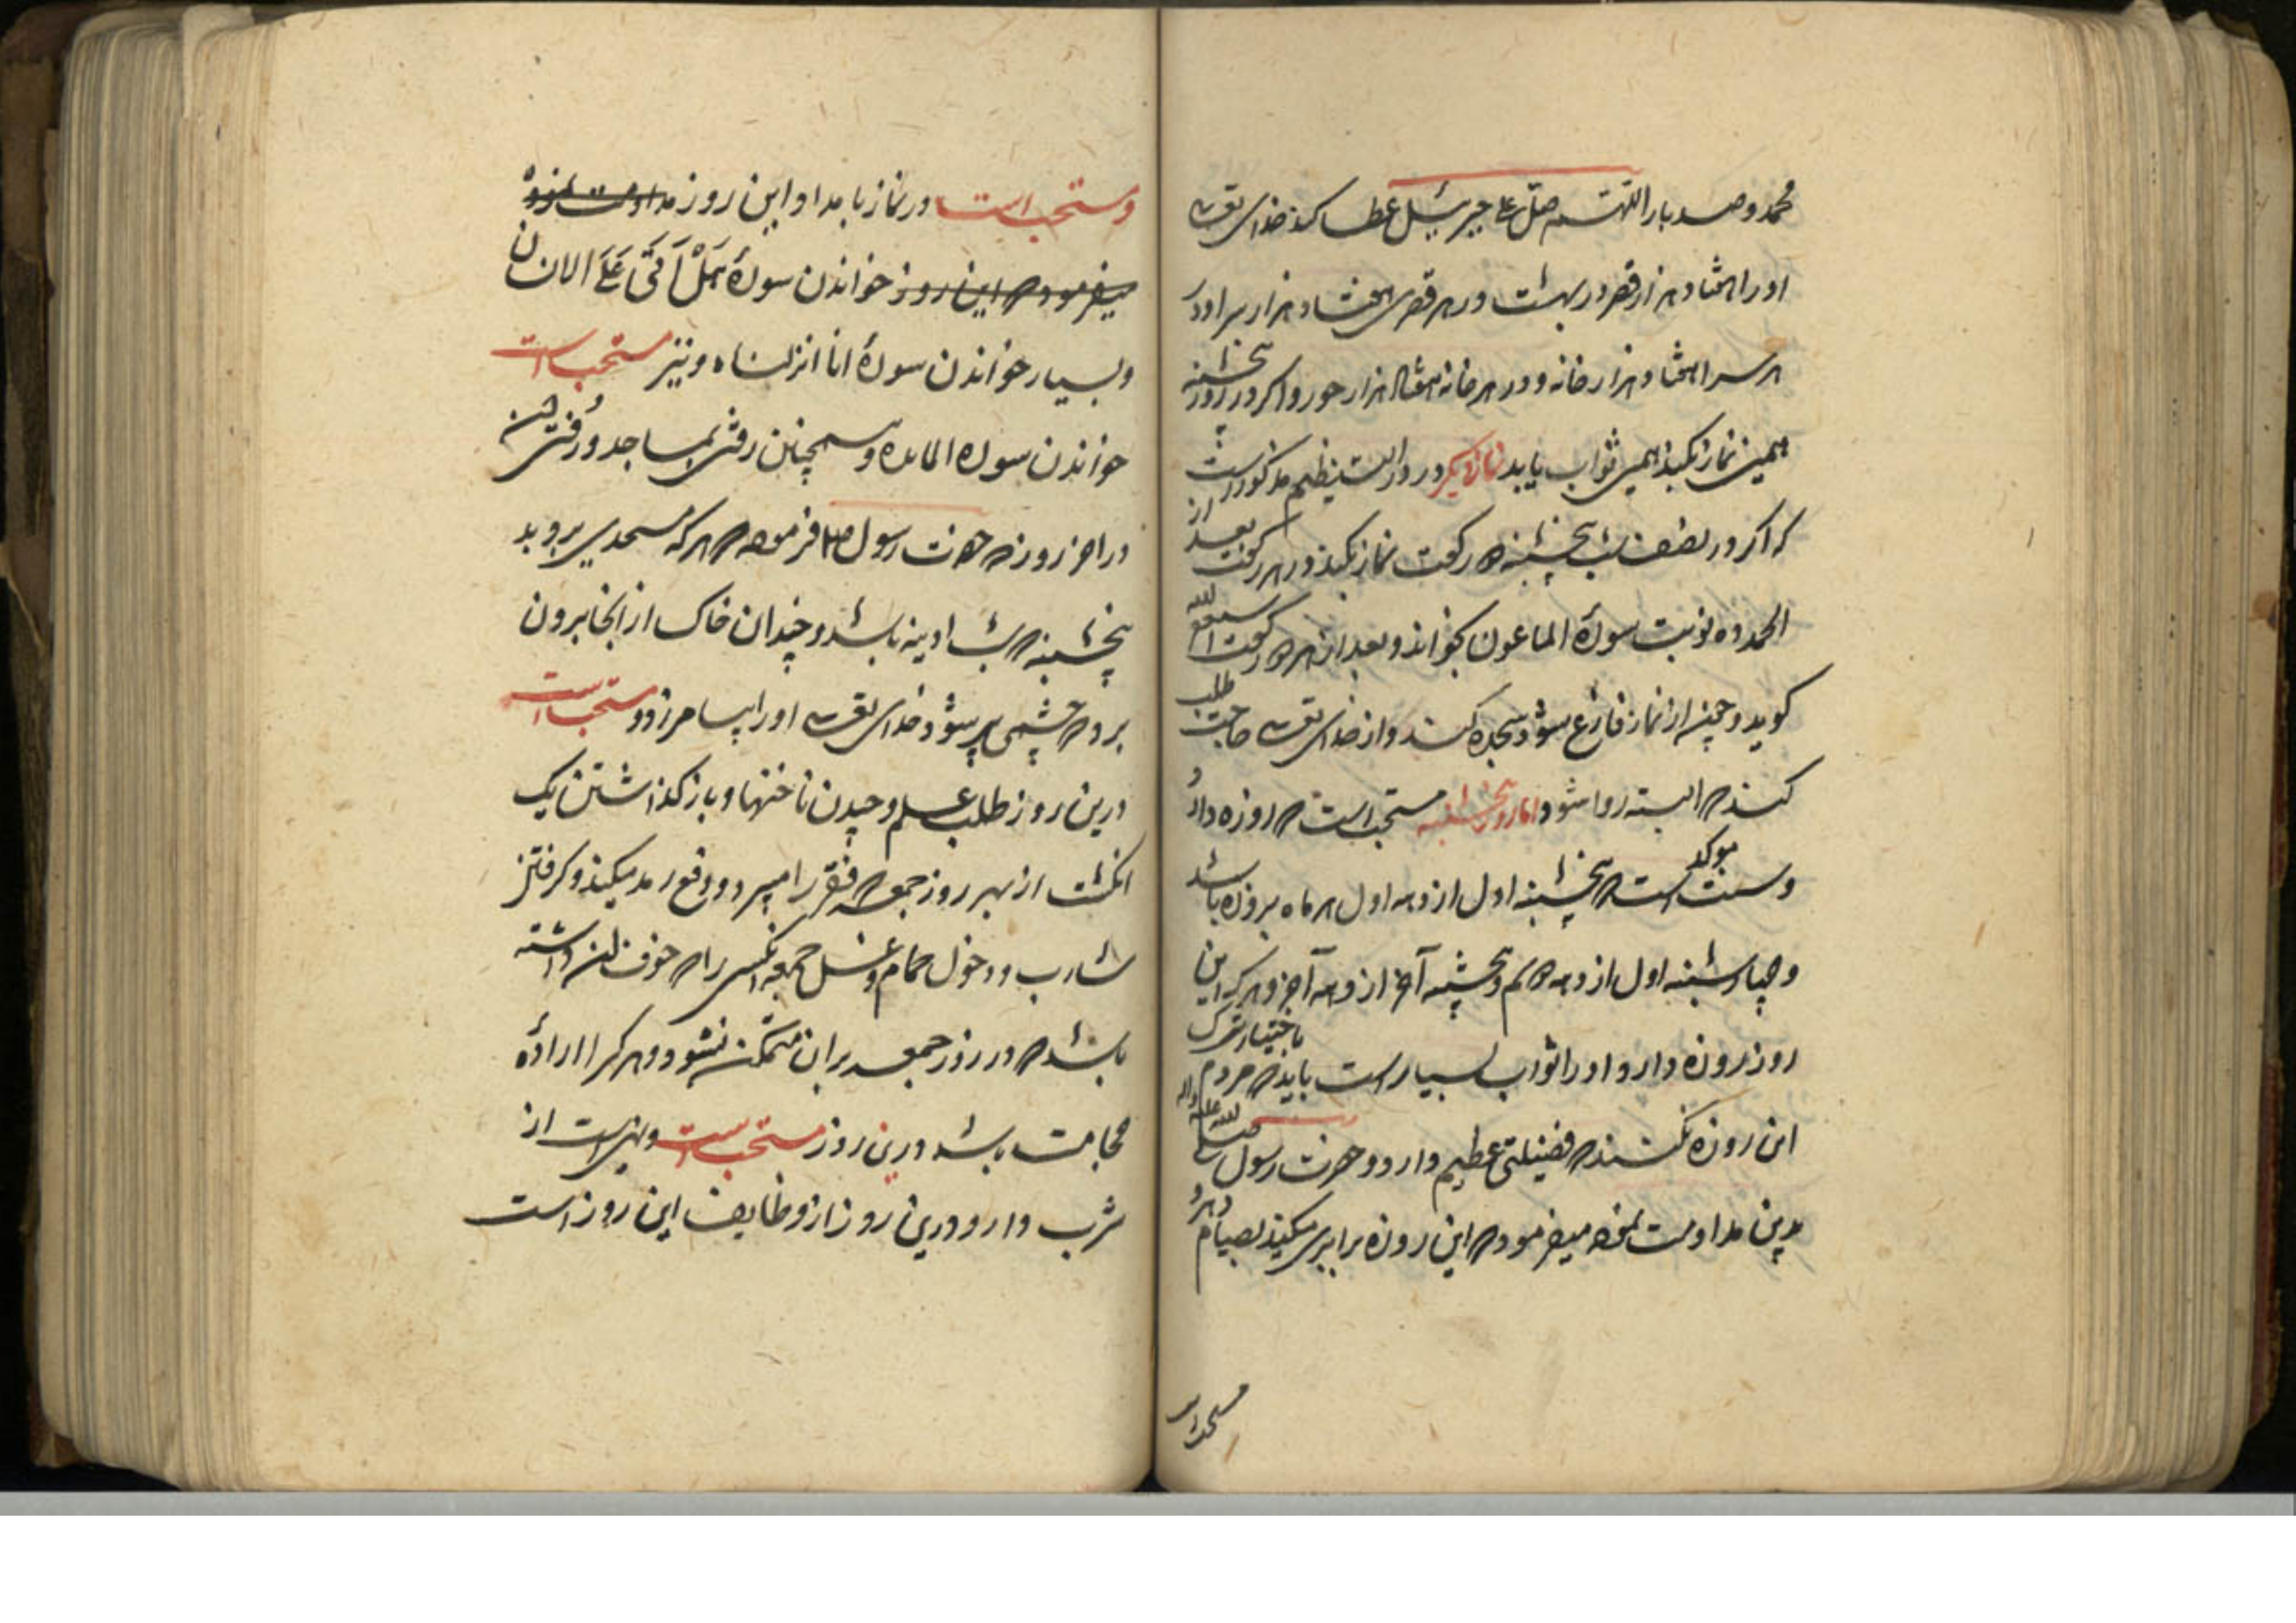 محمد و صد بار اللهم صل علی جبرئیل عطا کند خدای تعالی
او را هفتاد هزار قصر در بهشت و در هر قصری هفتاد هزار سرا و در
هر سرا هفتاد هزار خانه و در هر خانه هفتاد هزار حورا و اکر در روز پنجشنبه
همین نماز بکند همین ثواب یابد نماز دیکر در مذکور است
که اکر در نصف شب پنجشنبه دو رکعت نماز بکند و در هر رکعت بعد از
الحمد ده نوبت سورهٔ الماعون بخواند و بعد از هر دو رکعت
کوید و چون از نماز فارغ شود سجده کند و از خدای تعالی طلب حاجت
کند که البته روا شود اما روز پنجشنبه مستحب است که روزه دارد
و سنت موکد است که پنجشنبه اول از دهه اول هر ماه بروزه باشد
و چهارشنبه اول از دهه دوم و پنجشنبه آخر از دهه آخر و هر که این
روز روزه دارد او را ثواب بسیار است باید که مردم باختیار ترک
این روزه نکنند که فضیلتی عظیم دارد و حضرت رسول صلی الله علیه و اله
بدین مداومت نموده میفرمود که این روزه برابری میکند بصیام دهر و
مستحب است
و مستحب است در نماز بامداد این روز مداومت نموده
میفرمود که این روز خواندن سورهٔ هَلْ اَتَی عَلَی الانسان
و بسیار خواندن سورهٔ انا انزلناه و نیز مستحب است
خواندن سوره المائده و همچنین رفتن بمساجد و رُفتن آن
در اخر روز که حضرت رسول فرموده که هر که مسجدی بروبد
پنجشنبه که شب ادینه باشد و چندان خاک از انجا برون
برد که چشمی پر شود خدای تعالی او را بیامرزد و مستحب است
درین روز طلب علم و چیدن ناخنها و باز کذاشتن یک
انکشت از بهر روز جمعه که فقر را میبرد و دفع رمد میکند و کرفتن
شارب و دخول حمام و غسل جمعه انکسی را که خوف ان داشته
باشد که در روز جمعه بران متمکن نشود و هر که را اراده
حجامت باشد درین روز مستحب است و نهی است از
شرب دارو درین روز از وظایف این روز است